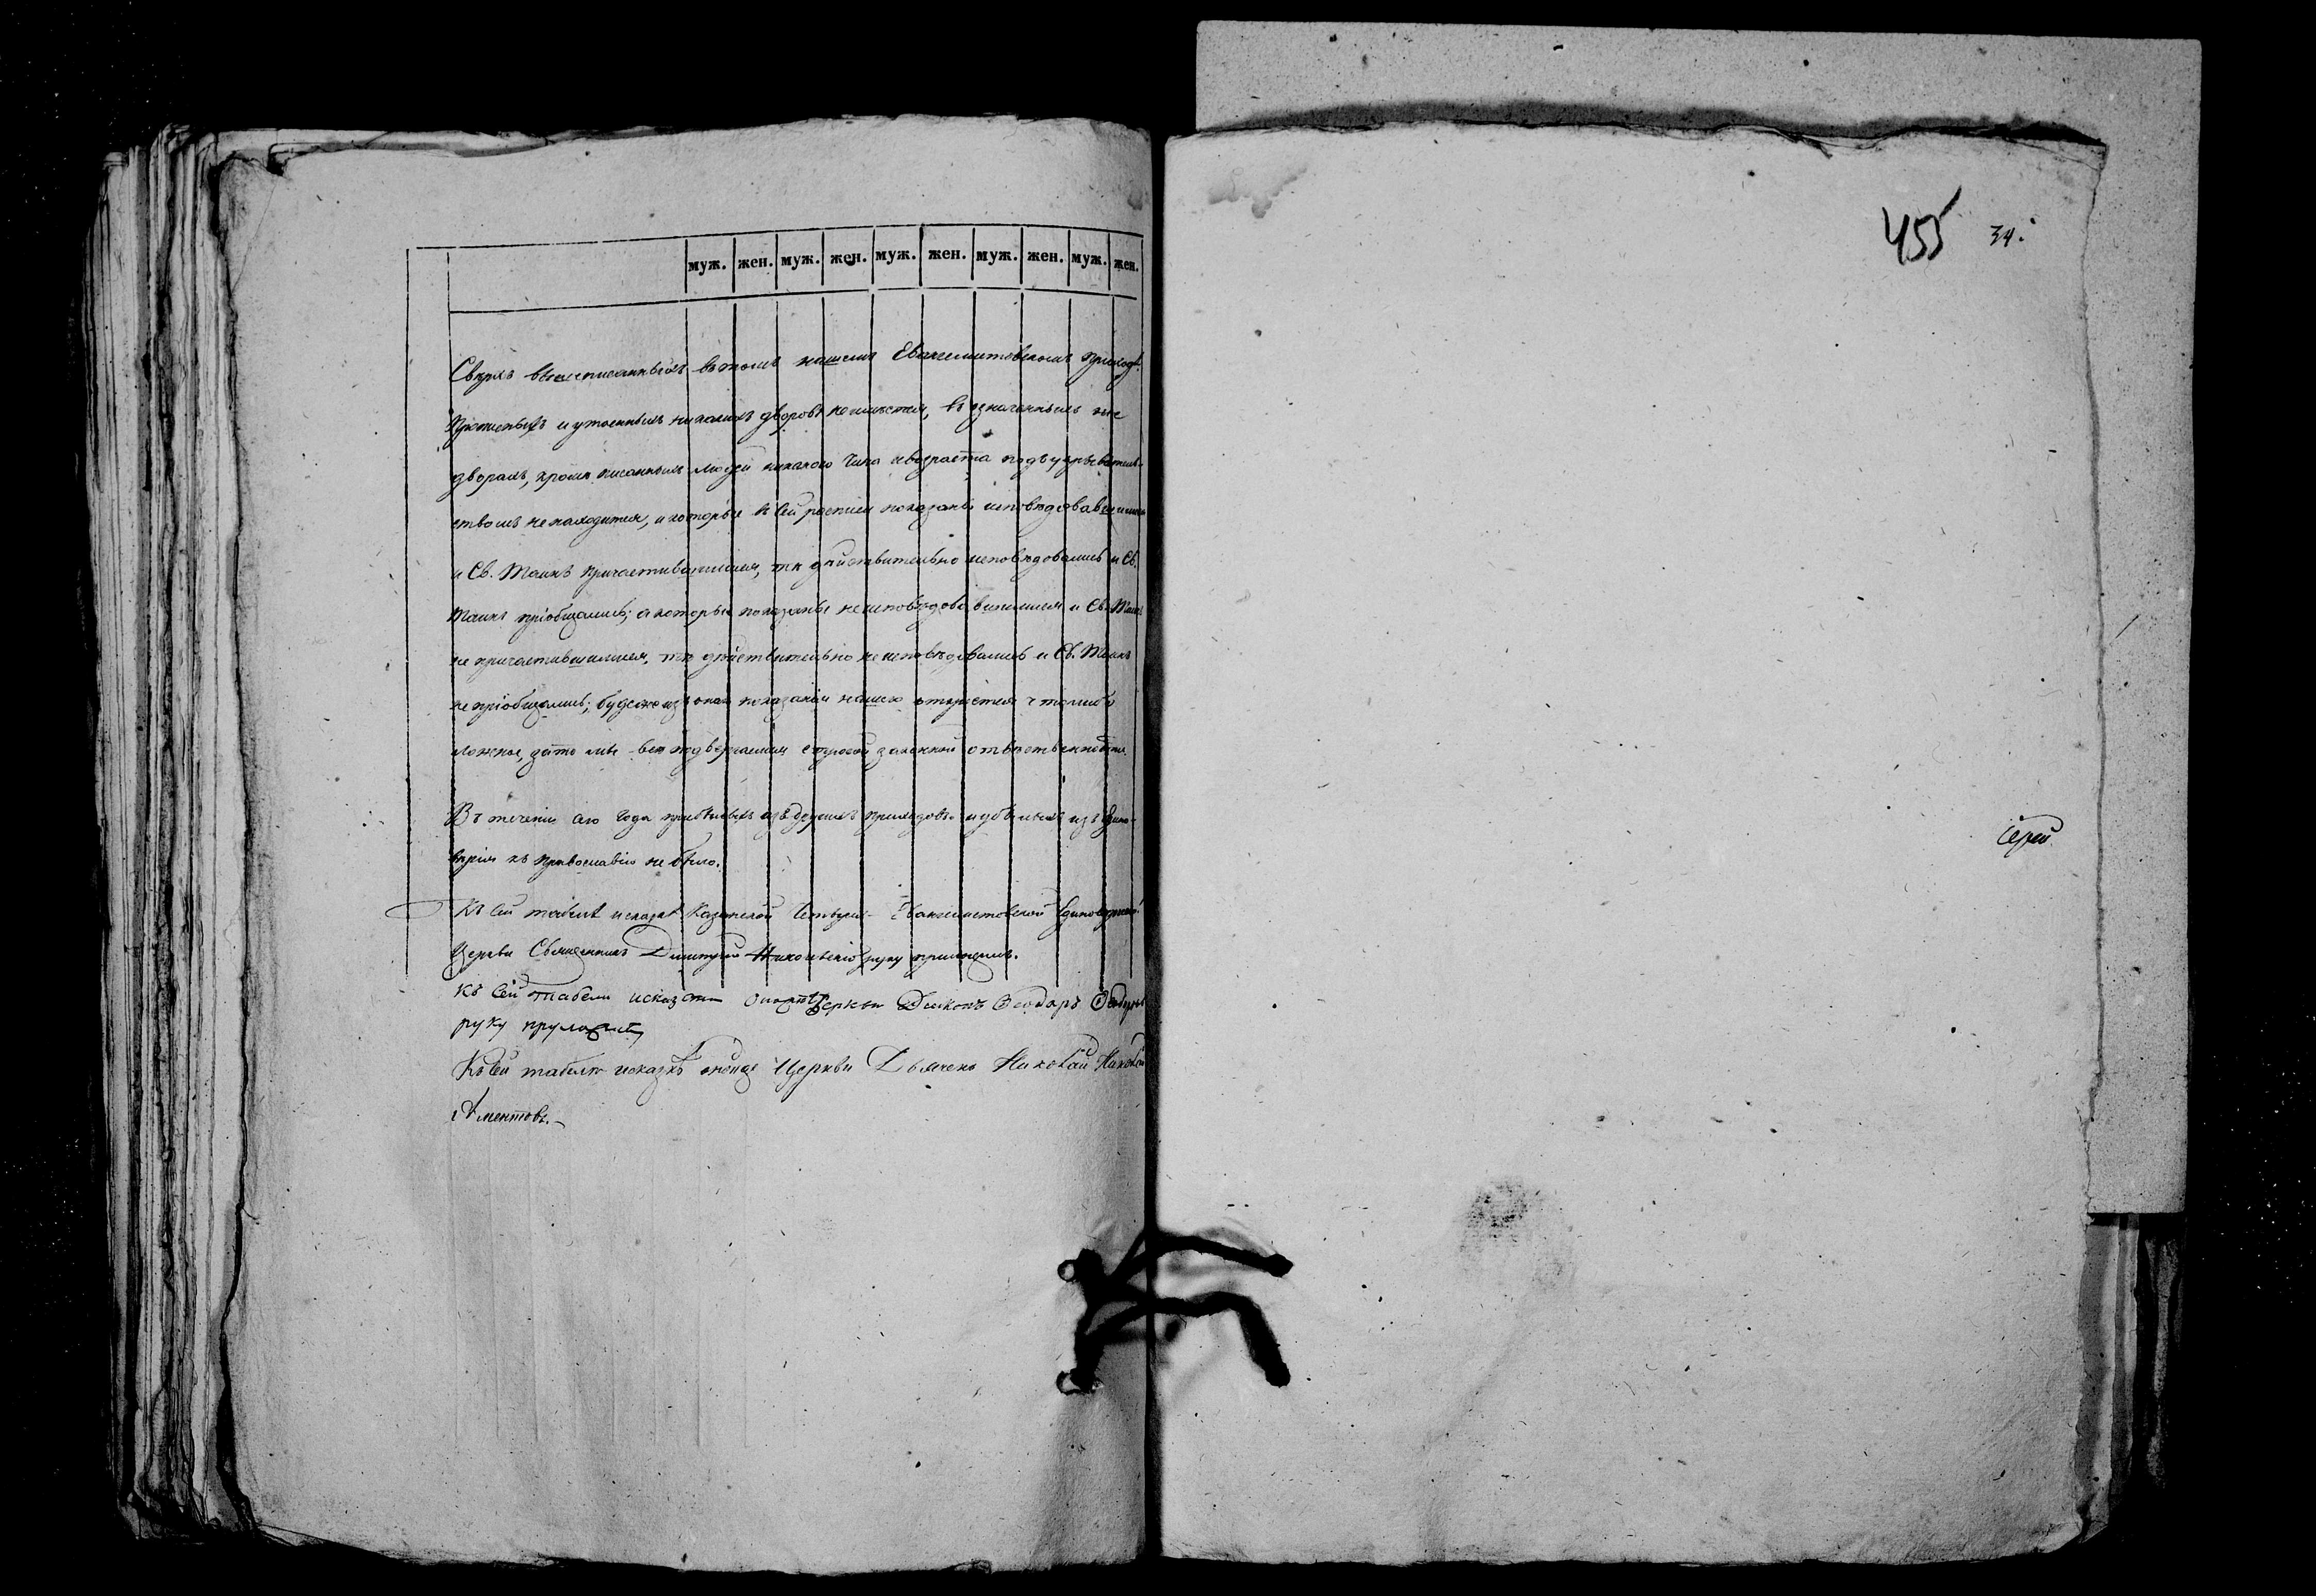 муж. жен. муж. жен. муж. жен. муж. жен. муж. жен.
455 34.
Сверхъ вышеписанныхъ въ томъ нашемъ Евангелистовскомъ приходѣ
прописныхъ и утаенныхъ никакихъ дворовъ неимѣется, въ означенныхъ же
дворахъ, кромѣ писанныхъ людей никакого чина и возраста подъ укрывательствомъ
ненаходится, и которые въ сей росписи показаны исповѣдовавшимися
и Св. Таинъ причастившимися, тѣ дѣйствительно исповѣдовались и Св.
Таинъ пріобщались; а которые показаны неисповѣдовавшимися и Св. Таинъ
не причастившимися, тѣ дѣйствительно неисповѣдовались и Св. Таинъ
непріобщались; будеже изъ онаго показанія нашего откроется что либо
ложное, за то мы всѣ подвергаемся строгой законной отвѣтственности.
Въ теченіи сего года прибылыхъ изъ другихъ приходовъ и убылыхъ изъ едино-
вѣрія къ православію не было.
Къ сей табели и сказкѣ Казанской Четырех- Евангелистовской Единовѣрческой
Церкви Священникъ Димитрій Никольскій руку приложилъ.
Къ сей табели исказки оной Церкви Дьяконъ Ѳеодоръ
руку приложилъ
Къ сей табели исказкѣ оной Церкви Дьячекъ Николай
Аментовъ.
Іерей